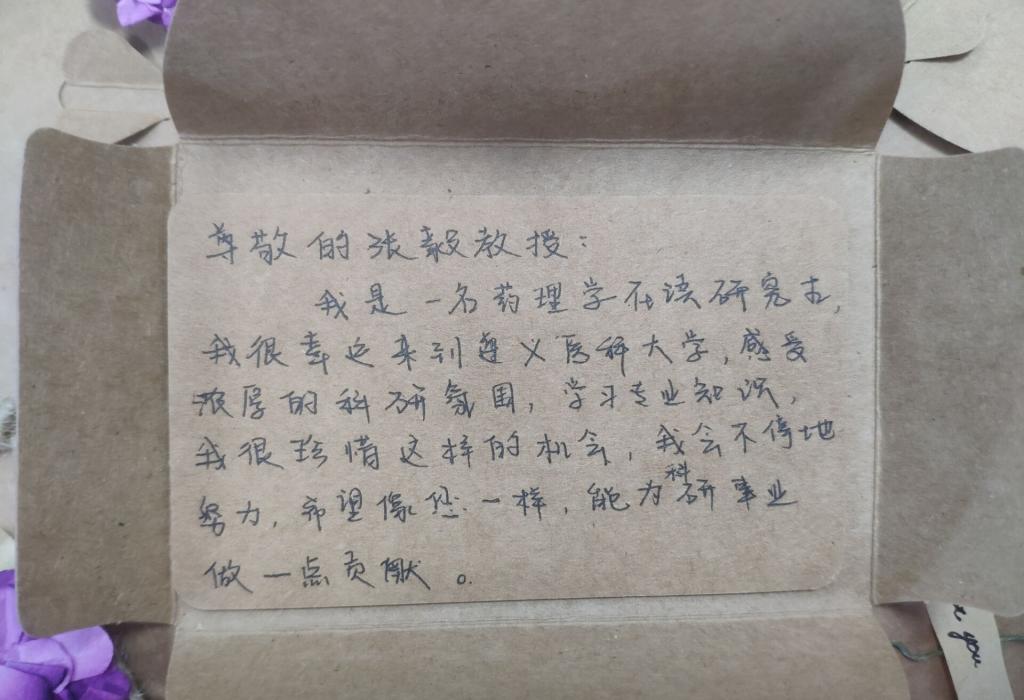 尊敬的张毅教授：
我是一名药理学在读研究生，
我很幸运来到遵义医科大学，感受
浓厚的科研氛围，学习专业知识，
我很珍惜这样的机会，我会不停地
努力，希望像您一样，能为科研事业
做一点贡献。
you